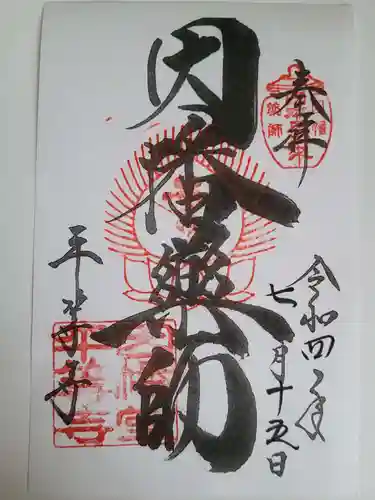 奉拝
令和四年
七月十五日
因幡薬師
平等寺